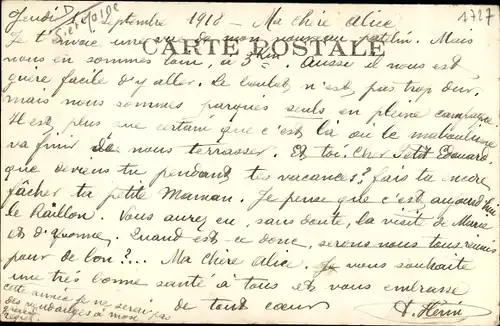 Jeudi Septembre 1918 - Ma Chère Alice
1727
CARTE POSTALE
Je t'envoie une vue de mon nouveau patelin. Mais
nous en sommes loin, à 3 km. Aussi il nous est
guère facile d'y aller. Le boulot n'est pas trop dur.
mais nous sommes parqués seuls en pleine campagne
Il est plus que certain que c'est là où le
va finir de nous terrasser. Et toi, Cher Petit Edouard
que deviens tu pendant tes vacances? fais tu encore
fâcher ta petite Maman. Je pense que c'est aujourd'hui
le Raillon. Vous aurez eu, sans doute, la visite de Marie
et d'Yvonne. Quand est-ce donc, serons nous tous réunis
pour de bon?... Ma Chère Alice. Je vous souhaite
une très bonne santé à tous et vous embrasse
de tout cœur
cette année je ne serai pas
des vendanges à mon
grand regret